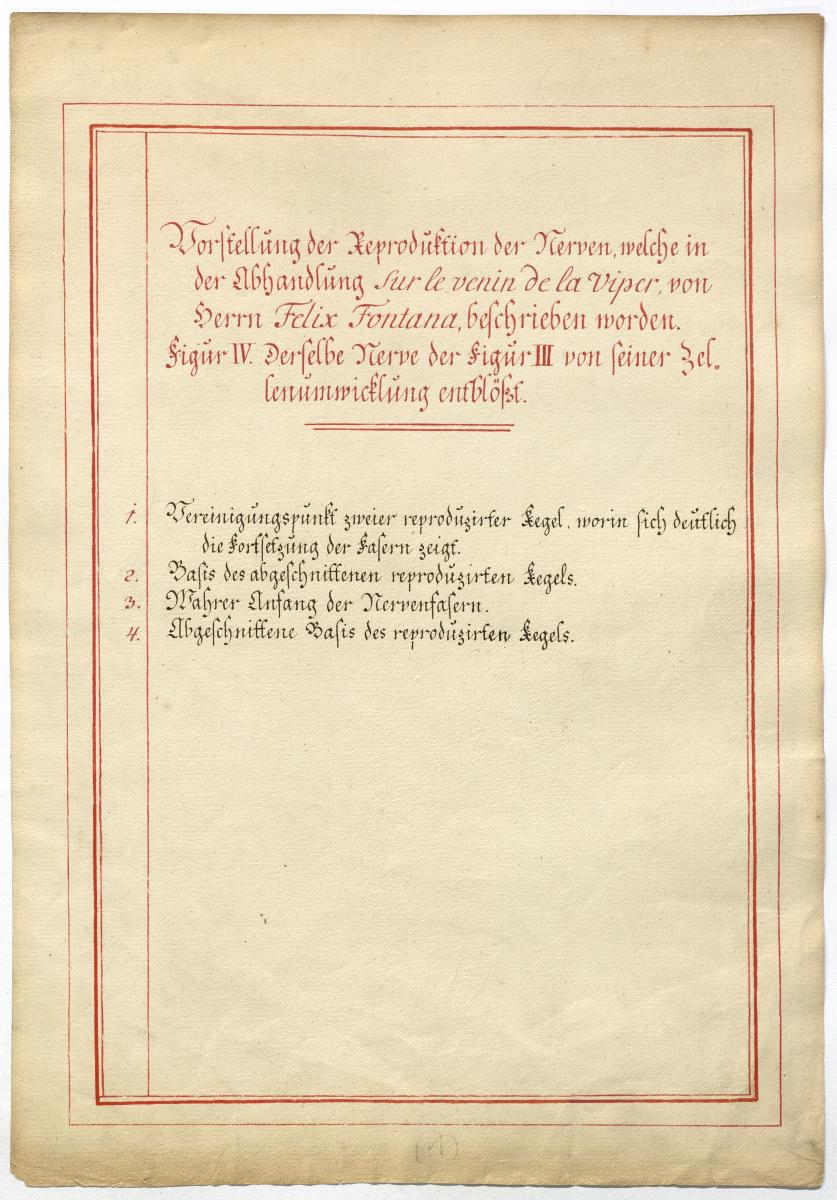 Vorstellung der Reproduktion der Nerven, welche in
der Abhandlung sur le venin de la Viper, von
Herrn Felix Fontana, beschrieben worden.
Figur IV. Derselbe Nerve der Figur III von seiner Zel„
lenumwicklung entblößt.
1. Vereinigungspunkt zweier reproduzirter Kegel, worin sich deutlich
die Fortsetzung der Fasern zeigt.
2. Basis des abgeschnittenen reproduzirten Kegels.
3. Wahrer Anfang der Nervenfasern.
4. Abgeschnittene Basis des reproduzirten Kegels.
(1)